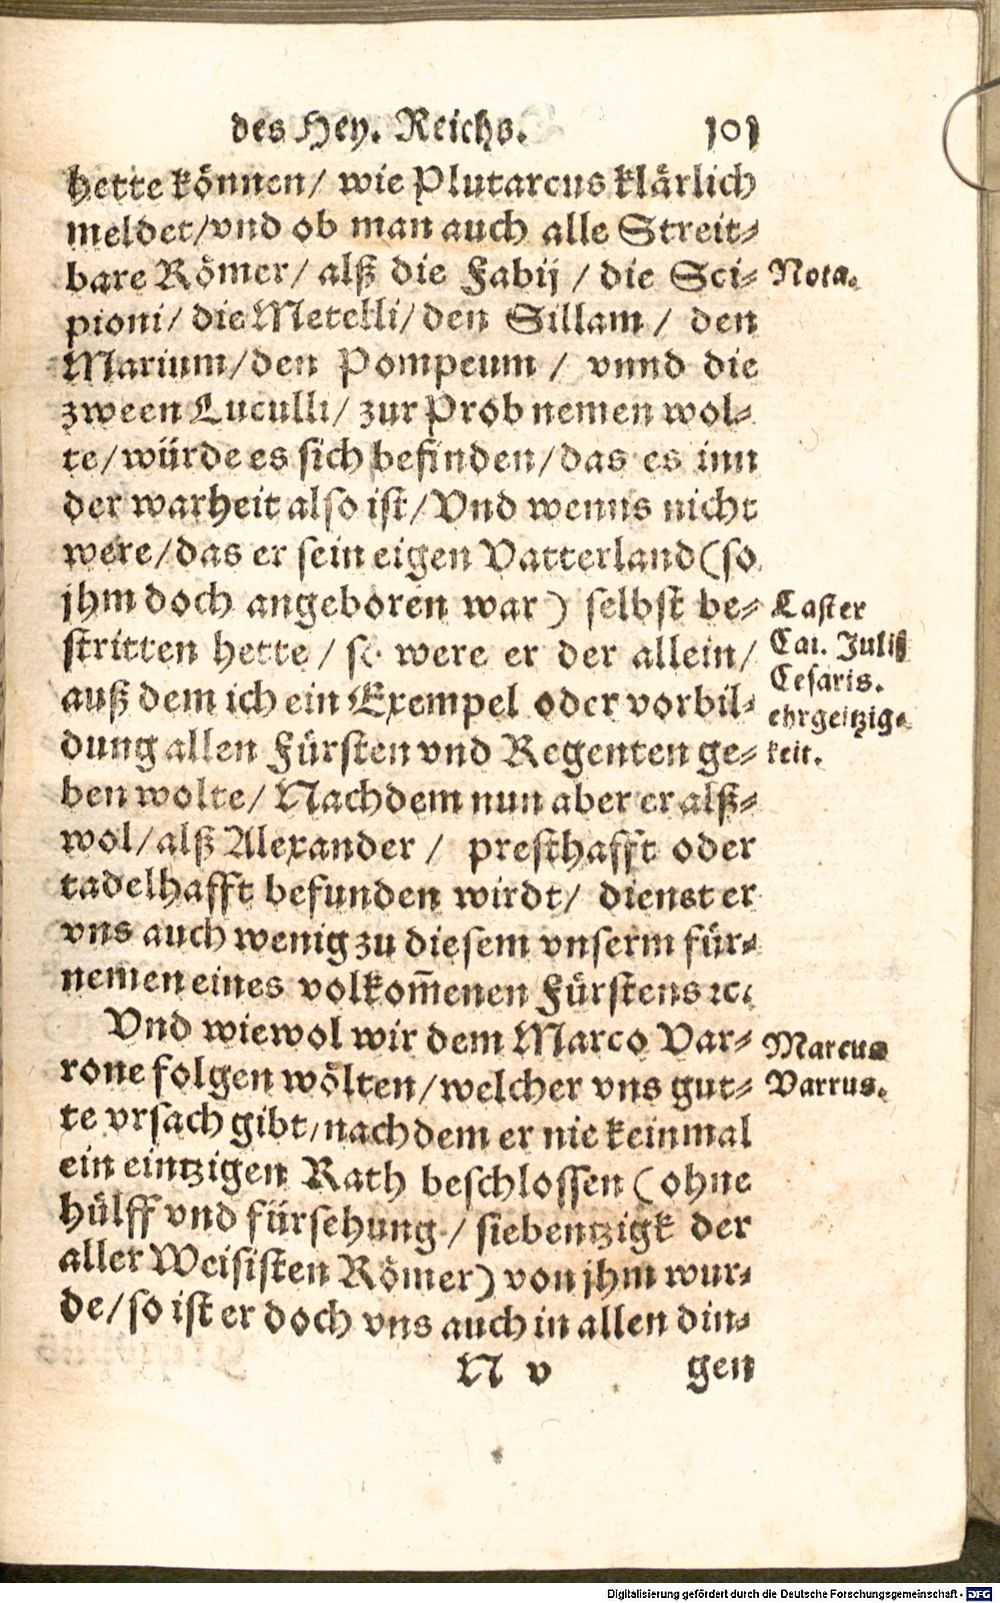 des Hey. Reichs. 101
hette können/ wie Plutarcus klärlich
meldet/vnd ob man auch alle Streit-
bare Römer/ alß die Fabij / die Sci-
Nota.
pioni/ die Metelli/ den Sillam / den
Marium/den Pompeum / vnnd die
zween Luculli/ zur Prob nemen wol-
te/würde es sich befinden/das es inn
der warheit also ist/Vnd wenns nicht
were/das er sein eigen Vatterland(so
jhm doch angeboren war) selbst be-
stritten hette / so were er der allein/
auß dem ich ein Exempel oder vorbil-
dung allen Fürsten vnd Regenten ge-
ben wolte/ Nachdem nun aber er alß-
Laster
Cai. Julij
Cesaris.
ehrgeitzig-
keit.
wol/alß Alexander / presthafft oder
tadelhafft befunden wirdt/ dienst er
vns auch wenig zu diesem vnserm für-
nemen eines volkom̄enen Fürstens ꝛc.
Vnd wiewol wir dem Marco Var-
rone folgen wölten/welcher vns gut-
Marcus
Varrus.
te vrsach gibt/nachdem er nie keinmal
ein eintzigen Rath beschlossen (ohne
hülff vnd fürsehung / siebentzigk der
aller Weisisten Römer) von jhm wur-
de/so ist er doch vns auch in allen din-
N v gen
Digitalisierung gefördert durch die Deutsche Forschungsgemeinschaft - DFG